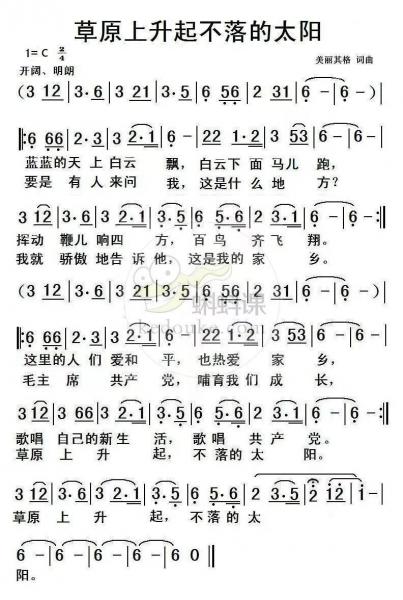 草原上升起不落的太阳
1=C 2/4
美丽其格 词曲
开阔、明朗
(3 12 | 3·6 | 3 21 | 3·5 | 6 5·6 | 2 31 | 6 - | 6 -) |
‖: 6 66 | 2·3 | 3 2·1 | 6 - | 22 12 | 3 53 | 6 - | 6 - |
蓝蓝的天上白云 飘,白云下面马儿跑,
要是 有人来问 我,这是什么地 方?
3 12 | 3·6 | 3 2·1 | 3·5 | 6 5·6 | 2·1 | 6 - | 6 - :‖
挥动 鞭儿响四 方,百鸟 齐飞 翔。
我就 骄傲地告诉他,这是我的家 乡。
(3 12 | 3·6 | 3 21 | 3·5 | 6 5·6 | 2 31 | 6 - | 6 -) |
‖: 6 66 | 2·3 | 3 2·1 | 6 - | 22 12 | 3 53 | 6 - | 6 - |
这里的人们 爱和 平,也热爱 家 乡,
毛主 席 共产 党,哺育我们成 长,
3 12 | 3 66 | 3 2·1 | 3·5 | 6 5·6 | 2·1 | 6 - | 6 - :‖
歌唱 自己的新生 活,歌唱 共产 党。
草原 上 升 起,不落的太 阳。
3 12 | 3·6 | 3 2·1 | 3·5 | 6 5·6 | 3·5 | 2 2 | 1 - |
草原 上 升 起,不落的太
6 - | 6 - | 6 - | 6 0 ‖
阳。
蝌蚪课
kedouke.com